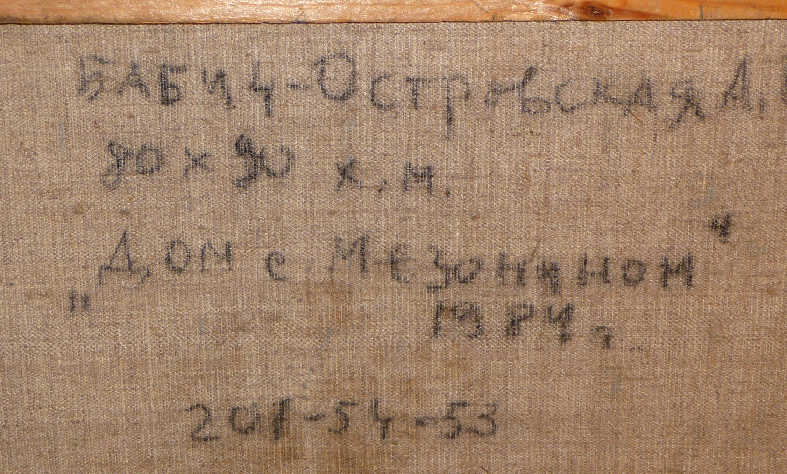 БАБИЧ-ОСТРОВСКАЯ А.
80 х 90 х.м.
"Дом с Мезонином"
1984 г.
201-54-53